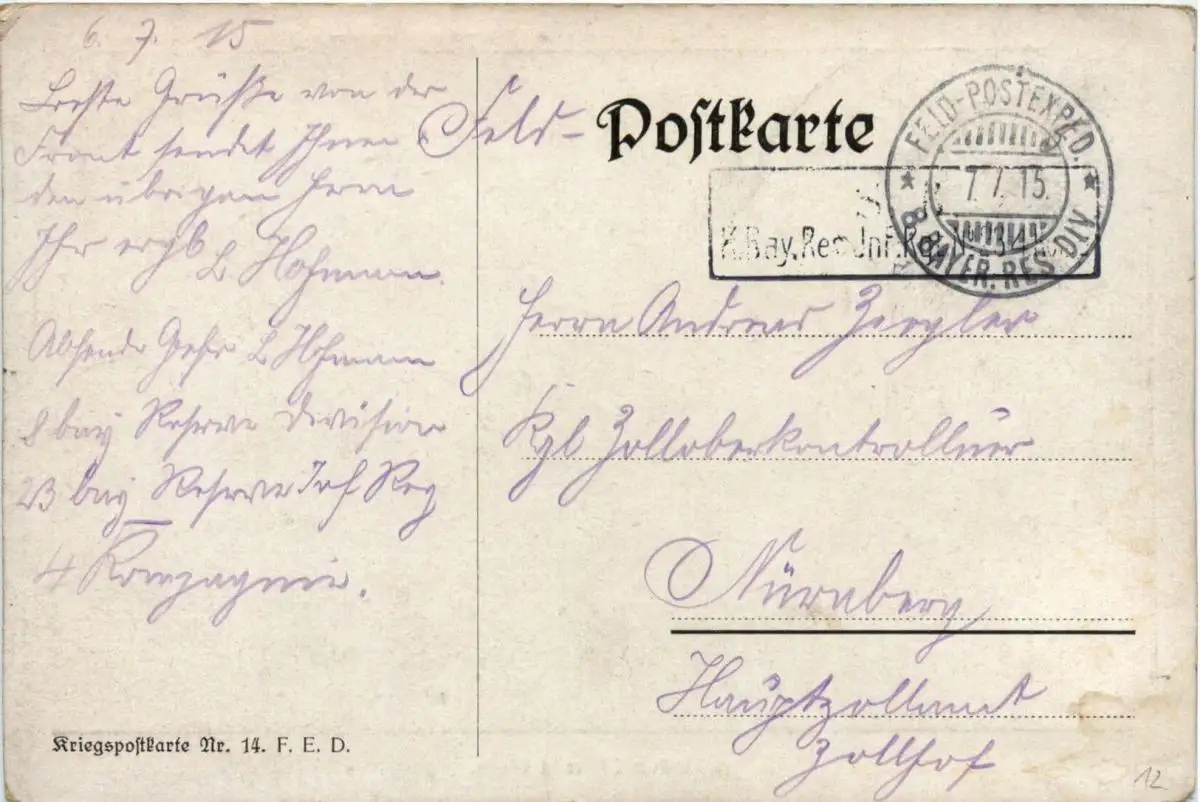 6. 7. 15
Beste Grüße von der
Front sendet Ihnen
den übrigen Herrn
Ihr ergb L Hofmann.
Absender Gefr L Hofmann
8 bay Reserve Division
23 bay Reserve Inf Reg
4 Kompagnie.
Kriegspostkarte Nr. 14. F. E. D.
Feld-Postkarte
FELD-POSTEXPED.
7.7.15.
B. 8. BAYER. RES. DIV.
K. Bay. Res. Inf. Rg. N
Herrn Andreas Ziegler
Kgl Zolloberkontrolleur
Nürnberg
Hauptzollamt
Zollhof
12